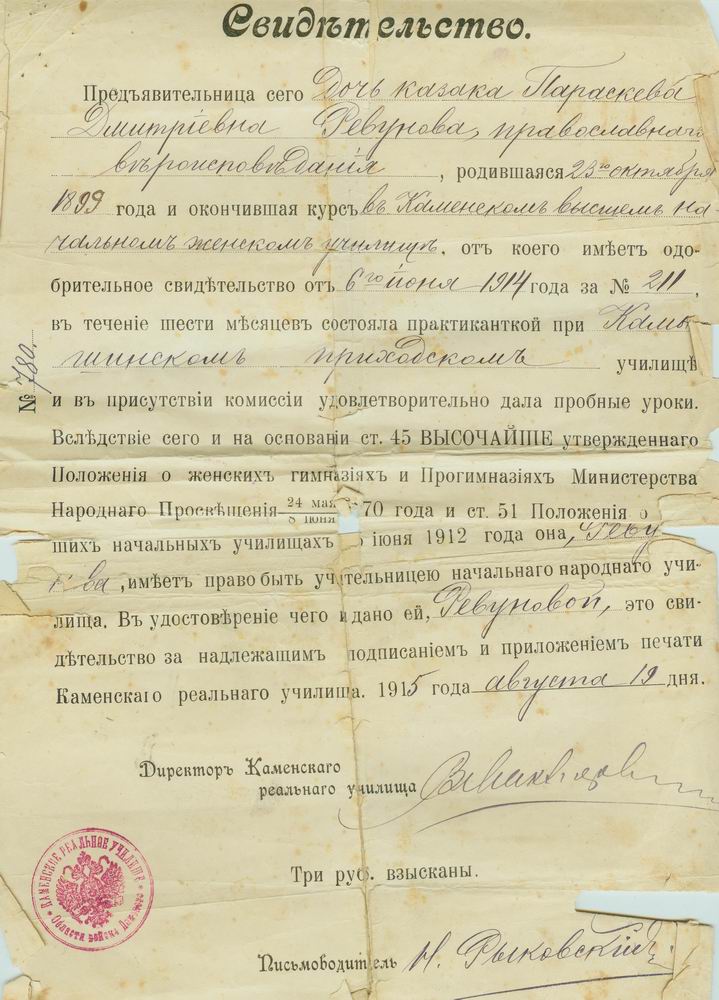 Свидѣтельство.
Предъявительница сего Дочь казака Параскева
Дмитріевна Ревунова, православнаго
вѣроисповѣданія, родившаяся 23го октября
1899 года и окончившая курсъ въ Каменскомъ высшемъ на-
чальномъ женскомъ училищѣ, отъ коего имѣетъ одо-
брительное свидѣтельство отъ 6го іюня 1914 года за № 211,
въ теченіе шести мѣсяцевъ состояла практиканткой при Камы-
шинскомъ приходскомъ училищѣ
№ 780.
и въ присутствіи комиссіи удовлетворительно дала пробные уроки.
Вслѣдствіе сего и на основаніи ст. 45 ВЫСОЧАЙШЕ утвержденнаго
Положенія о женскихъ гимназіяхъ и Прогимназіяхъ Министерства
Народнаго Просвѣщенія 24 мая / 8 іюня 70 года и ст. 51 Положенія о
шихъ начальныхъ училищахъ іюня 1912 года она, Реву
ва, имѣетъ право быть учительницею начальнаго народнаго учи-
лища. Въ удостовѣреніе чего и дано ей, Ревуновой, это сви-
дѣтельство за надлежащимъ подписаніемъ и приложеніемъ печати
Каменскаго реальнаго училища. 1915 года августа 19 дня.
Директоръ Каменскаго
реальнаго училища
КАМЕНСКОЕ РЕАЛЬНОЕ УЧИЛИЩЕ
Области войска Донскаго
Три руб. взысканы.
Письмоводитель Н. Рыковскій